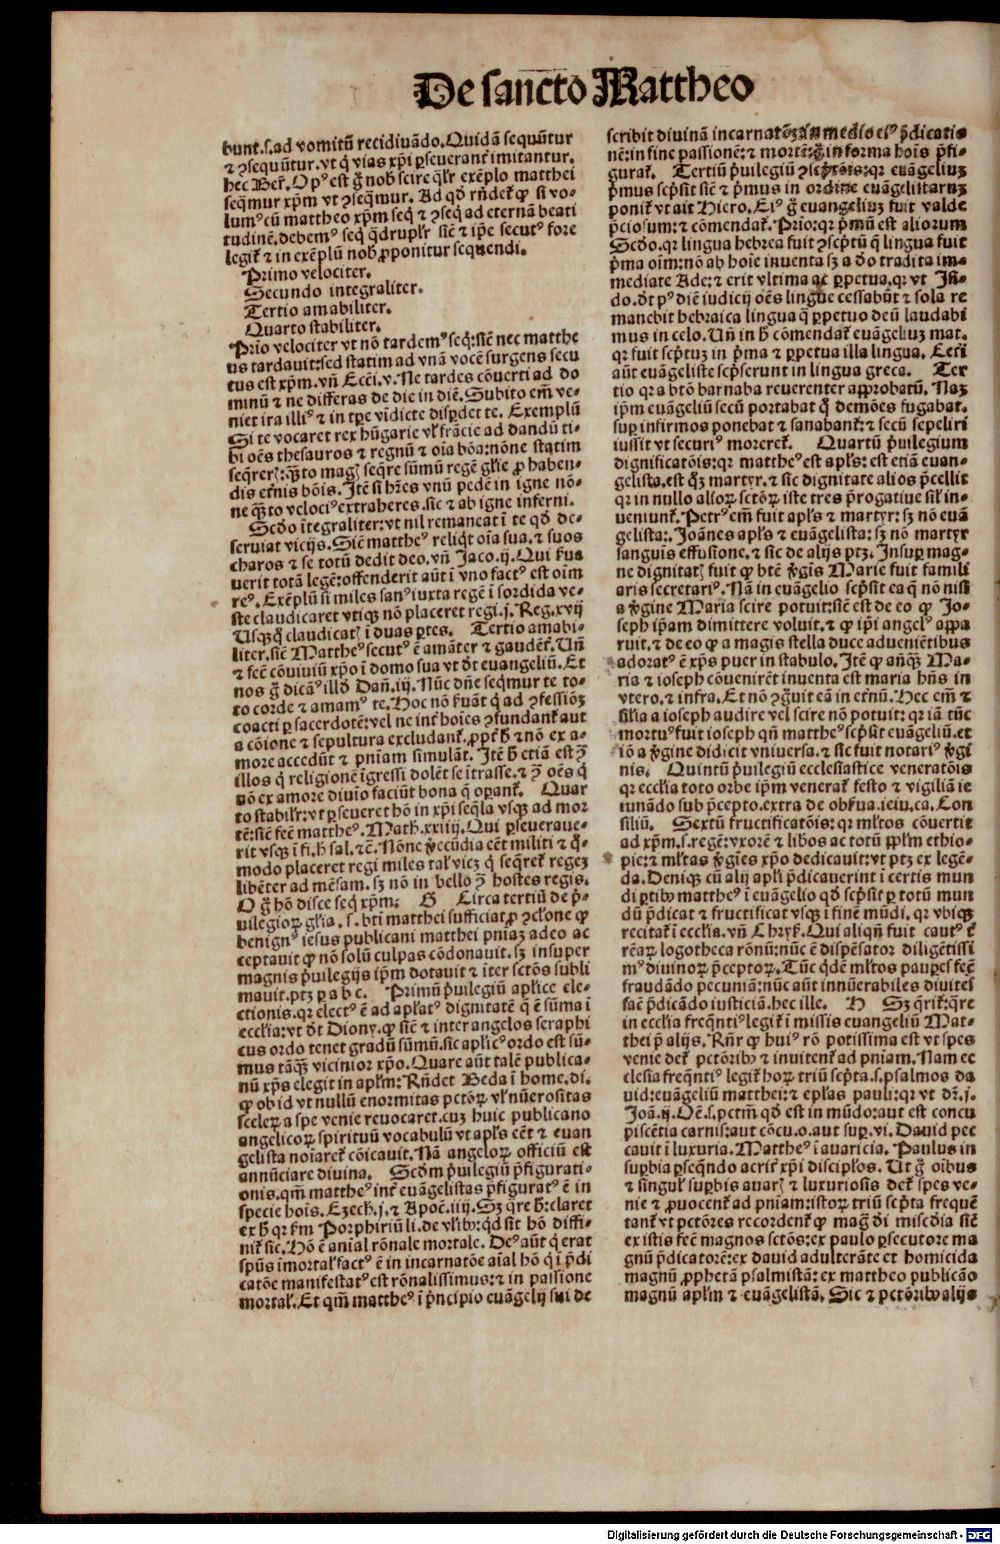 De sancto Mattheo
bunt.s.ad vomitū recidiuādo.Quidā sequūtur
⁊ ꝯsequūtur.vt q̇ vias xp̄i ꝑseuerant̄ imitantur.
hec Ber̄. Opꝰ est g̊ nob̄ scire qͣlr̄ exēplo matthei
seq̄mur xp̄m vt ꝯseq̄mur. Ad qd̄ rn̄det̄ ꝙ si vo-
lumꝰ cū mattheo xp̄m seq̄ ⁊ ꝯseq̄ ad eternā beati
tudinē.debemꝰ seq̄ qͣdruplr̄ sic̄ ⁊ ip̄e secutꝰ fore
legit̄ ⁊ in exēplū nob̄ ꝓponitur sequendi.
Primo velociter.
Secundo integraliter.
Tertio amabiliter.
Quarto stabiliter.
Prīo velociter vt nō tardemꝰ seq̄:sic̄ nec matthe
us tardauit:sed statim ad vnā vocē surgens secu
tus est xp̄m.vn̄ Ecc̄i.v.Ne tardes cōuerti ad do
minū ⁊ ne differas de die in diē.Subito em̄ ve-
niet ira illiꝰ ⁊ in tꝑe vīdicte disꝑdet te. Exemplū
Si te vocaret rex hūgarie vl̓ frācie ad dandū ti-
bi oēs thesauros ⁊ regnū ⁊ oīa bōa:nōne statim
seq̄rer̄:qͣto maḡ seq̄re sūmū regē gl̓ie ꝓ haben-
dis et̄nis bōis. Itē si hr̄es vnū pedē in igne nō-
ne qͣto velociꝰ extraheres.sic ⁊ ab igne inferni.
Scd̓o ītegraliter:vt nil remaneat ī te qd̄ de-
seruiat vicijs.Sic̄ mattheꝰ reliq̄t oīa sua.⁊ suos
charos ⁊ se totū dedit deo.vn̄ Jaco.ij.Qui ẜua
uerit totā legē:offenderit aūt ī vno factꝰ est oīm
reꝰ.Exēplū si miles sanꝰ iuxta regē ī sordida ve-
ste claudicaret vtiq̨ nō placeret regi.j.Reg.xvij
Usq̨q̨ claudicat̄ ī duas ꝑtes. Tertio amabi-
liter.sic̄ Mattheꝰ secutꝰ ē amāter ⁊ gaudēt̄. Un̄
⁊ fec̄ cōuiuiū xp̄o ī domo sua vt d̄t euangeliū. Et
nos g̊ dicāꝰ illd̄ Dan̄.iij. Nūc dn̄e seq̄mur te to-
to corde ⁊ amamꝰ te.Hoc nō ẜuāt q̇ ad ꝯfessiōꝫ
coacti ꝑ sacerdotē:vel ne int̄ hoīes ꝯfundant̄ aut
a cōione ⁊ sepultura excludant̄.ꝓpt̄ h̄ ⁊ nō ex a-
more accedūt ⁊ pn̄iam simulāt. Itē h̄ etiā est ꝯ̄
illos q̇ religionē īgressi dolēt se ītrasse.⁊ ꝯ̄ oēs q̇
nō ex amore diuīo faciūt bona q̄ oꝑant̄. Quar
to stabilr̄:vt ꝑseueret hō in xp̄i seq̄la vsq̨ ad mor
tē:sic̄ fec̄ mattheꝰ.Math̄.xxiiij.Qui ꝑseueraue-
rit vsq̨ ī fi.h̄ sal.⁊c̄. Nōne v̓ecūdia eēt militi ⁊ q̄-
modo placeret regi miles tal̓ vicꝫ q̇ seq̄ret̄ regeꝫ
libēter ad mēsam.sꝫ nō in bello ꝯ̄ hostes regis.
O g̊ hō disce seq̄ xp̄m: G Circa tertiū de p̄-
uilegioꝝ gl̓ia.s.bt̄i matthei sufficiat ꝓ ꝯcl̓one ꝙ
benignꝰ iesus publicani matthei pn̄iaꝫ adeo ac
ceptauit ꝙ nō solū culpas cōdonauit.sꝫ insuper
magnis p̄uilegijs ip̄m dotauit ⁊ īter sctōs subli
mauit.ptꝫ ꝑ a b c. Primū p̄uilegiū apl̓ice ele-
ctionis.qr electꝰ ē ad apl̓atꝰ dignitatē q̄ ē sūma ī
eccl̓ia:vt d̄t Diony.ꝙ sic̄ ⁊ inter angelos seraphi
cus ordo tenet gradū sūmū.sic apl̓icꝰ ordo est sū-
mus tāqͣ vicinior xp̄o.Quare aūt talē publica-
nū xp̄s elegit in apl̓m:Rn̄det Beda ī home.di.
ꝙ ob id vt nullū enormitas pctōꝝ vl̓ nūerositas
sceleꝝ a spe venie reuocaret.cuꝫ huic publicano
angelicoꝝ spirituū vocabulū vt apl̓s eēt ⁊ euan
gelista noīaret̄ cōicauit.Nā angeloꝝ officiū est
annūciare diuina. Scd̄m p̄uilegiū p̄figurati-
onis.qm̄ mattheꝰ int̄ euāgelistas p̄figuratꝰ ē in
specie hoīs.Ezech.j.⁊ Apoc̄.iiij.Sꝫ q̄re h̄:claret
ex h̄ qr ẜm Porphiriū li.de vl̓ib̄:qd̄ sit hō diffi-
nit̄ sic.Hō ē anīal rōnale mortale. Deꝰ aūt q̇ erat
spūs īmortal̓ factꝰ ē in incarnatōe aīal hō q̇ ī p̄di
catōe manifestatꝰ est rōnalissimus:⁊ in passione
mortal̓.Et qm̄ mattheꝰ ī p̄ncipio euāgelij sui de
scribit diuinā incarnatōꝫ:in medio eiꝰ p̄dicatio
nē:in fine passionē:⁊ mortē:g̊ in forma hoīs p̄fi-
gurat̄. Tertiū p̄uilegiū ꝯscp̄tōis:qr euāgeliuꝫ
p̄mus scp̄sit sic̄ ⁊ p̄mus in ordine euāgelistaruꝫ
ponit̄ vt ait Hiero.Eiꝰ g̊ euangeliuꝫ fuit valde
p̄ciosum:⁊ cōmendat̄.Prīo:qr p̄mū est aliorum
Scd̓o.qr lingua hebrea fuit ꝯscp̄tū q̄ lingua fuit
p̄ma oīm:nō ab hoīe inuenta sꝫ a d̓o tradita im-
mediate Ade:⁊ erit vltima ac ꝑpetua.qr vt Isi-
do.d̄t pꝰ diē iudicij oēs lingue cessabūt ⁊ sola re
manebit hebraica lingua q̄ ꝑpetuo deū laudabi
mus in celo.Un̄ in h̄ cōmendat̄ euāgeliuꝫ mat.
qr fuit scp̄tuꝫ in p̄ma ⁊ ꝑpetua illa lingua. Cet̄i
aūt euāgeliste scp̄serunt in lingua greca. Ter
tio qr a btō barnaba reuerenter approbatū. Naꝫ
ip̄m euāgeliū secū portabat q̄ demōes fugabat.
suꝑ infirmos ponebat ⁊ sanabant̄:⁊ secū sepeliri
iussit vt securiꝰ moreret̄. Quartū p̄uilegium
dignificatōis:qr mattheꝰ est apl̓s:est etiā euan-
gelista.est qͣꝫ martyr.⁊ sic dignitate alios p̄cellit
qr in nullo alioꝝ sctōꝝ iste tres p̄rogatiue sil̓ in-
ueniunt̄.Petrꝰ em̄ fuit apl̓s ⁊ martyr:sꝫ nō euā
gelista:.Joānes apl̓s ⁊ euāgelista:sꝫ nō martyr
sanguis effusione.⁊ sic de alijs ptꝫ.Insuꝑ mag-
ne dignitat̄ fuit ꝙ bt̄e v̓gīs Marie fuit famili
aris secretariꝰ.Nā in euāgelio scp̄sit ea q̄ nō nisi
a v̓gine Maria scire potuit:sic̄ est de eo ꝙ Jo-
seph ip̄am dimittere voluit.⁊ ꝙ ip̄i angelꝰ appa
ruit.⁊ de eo ꝙ a magis stella duce aduenīetibus
adoratꝰ ē xp̄s puer in stabulo. Itē ꝙ an̄qͣ Ma-
ria ⁊ ioseph cōuenirēt inuenta est maria hn̄s in
vtero.⁊ infra.Et nō ꝯg̊uit eā in et̄nū.Hec em̄ ⁊
sil̓ia a ioseph audire vel scire nō potuit:qr iā tūc
mortuꝰ fuit ioseph qn̄ mattheꝰ scp̄sit euāgeliū.et
iō a v̓gine didicit vniuersa.⁊ sic fuit notariꝰ v̓gi
nis. Quintū p̄uilegiū ecclesiastice veneratōis
qr eccl̓ia toto orbe ip̄m venerat̄ festo ⁊ vigiliā ie
iunādo sub p̄cepto.extra de obẜua.ieiu.ca.Con
siliū. Sextū fructificatōis:qr ml̓tos cōuertit
ad xp̄m.s.regē:vxorē ⁊ libos ac totū ppl̓m ethio-
pie:⁊ ml̓tas v̓gīes xp̄o dedicauit:vt ptꝫ ex legē-
da.Deniq̨ cū alij apl̓i p̄dicauerint ī certis mun
di ꝑtib̨ mattheꝰ ī euāgelio qd̄ scp̄sit ꝑ totū mun
dū p̄dicat ⁊ fructificat vsq̨ ī finē mūdi.qr vbiq̨
recitat̄ ī eccl̓is.vn̄ Chryẜ.Qui aliqn̄ fuit cautꝰ t̄
rēaꝝ logotheca rōnū:nūc ē dispēsator diligētissi
mꝰ diuinoꝝ p̄ceptoꝝ.Tūc qͥdē ml̓tos pauꝑes fec̄
fraudādo pecuniā:nūc aūt innūerabiles diuites
fac̄ p̄dicādo iusticiā.hec ille. H Sꝫ q̄rit̄:q̄re
in eccl̓ia freq̄ntiꝰ legit̄ ī missis euangeliū Mat-
thei p̄ alijs.Rn̄r ꝙ huiꝰ rō potissima est vt spes
venie det̄ pctōrib̨ ⁊ inuitent̄ ad pn̄iam.Nam ec
clesia freq̄ntiꝰ legit̄ hoꝝ triū scp̄ta.s.psalmos da
uid:euāgeliū matthei:⁊ epl̓as pauli:qr vt dr̄.j.
Joā.ij.Oē.s.pctm̄ qd̄ est in mūdo:aut est concu
piscētia carnis:aut cōcu.o.aut suꝑ.vi.Dauid pec
cauit ī luxuria.Mattheꝰ ī auaricia. Paulus in
suꝑbia ꝑseq̄ndo acrit̄ xp̄i discipl̓os. Ut g̊ oībus
⁊ singul̓ suꝑbis auar̄ ⁊ luxuriosis det̄ spes ve-
nie ⁊ ꝓuocent̄ ad pn̄iam:istoꝝ triū scp̄ta frequē
tant̄ vt pctōres recordent̄ ꝙ mag̊ d̓i misc̄dia sic̄
ex istis fec̄ magnos sctōs:ex paulo ꝑsecutore ma
gnū p̄dicatorē:ex dauid adulterāte et homicida
magnū ꝓphetā psalmistā:ex mattheo publicāo
magnū apl̓m ⁊ euāgelistā.Sic ⁊ pctōrib̨ alijs
Digitalisierung gefördert durch die Deutsche Forschungsgemeinschaft - DFG